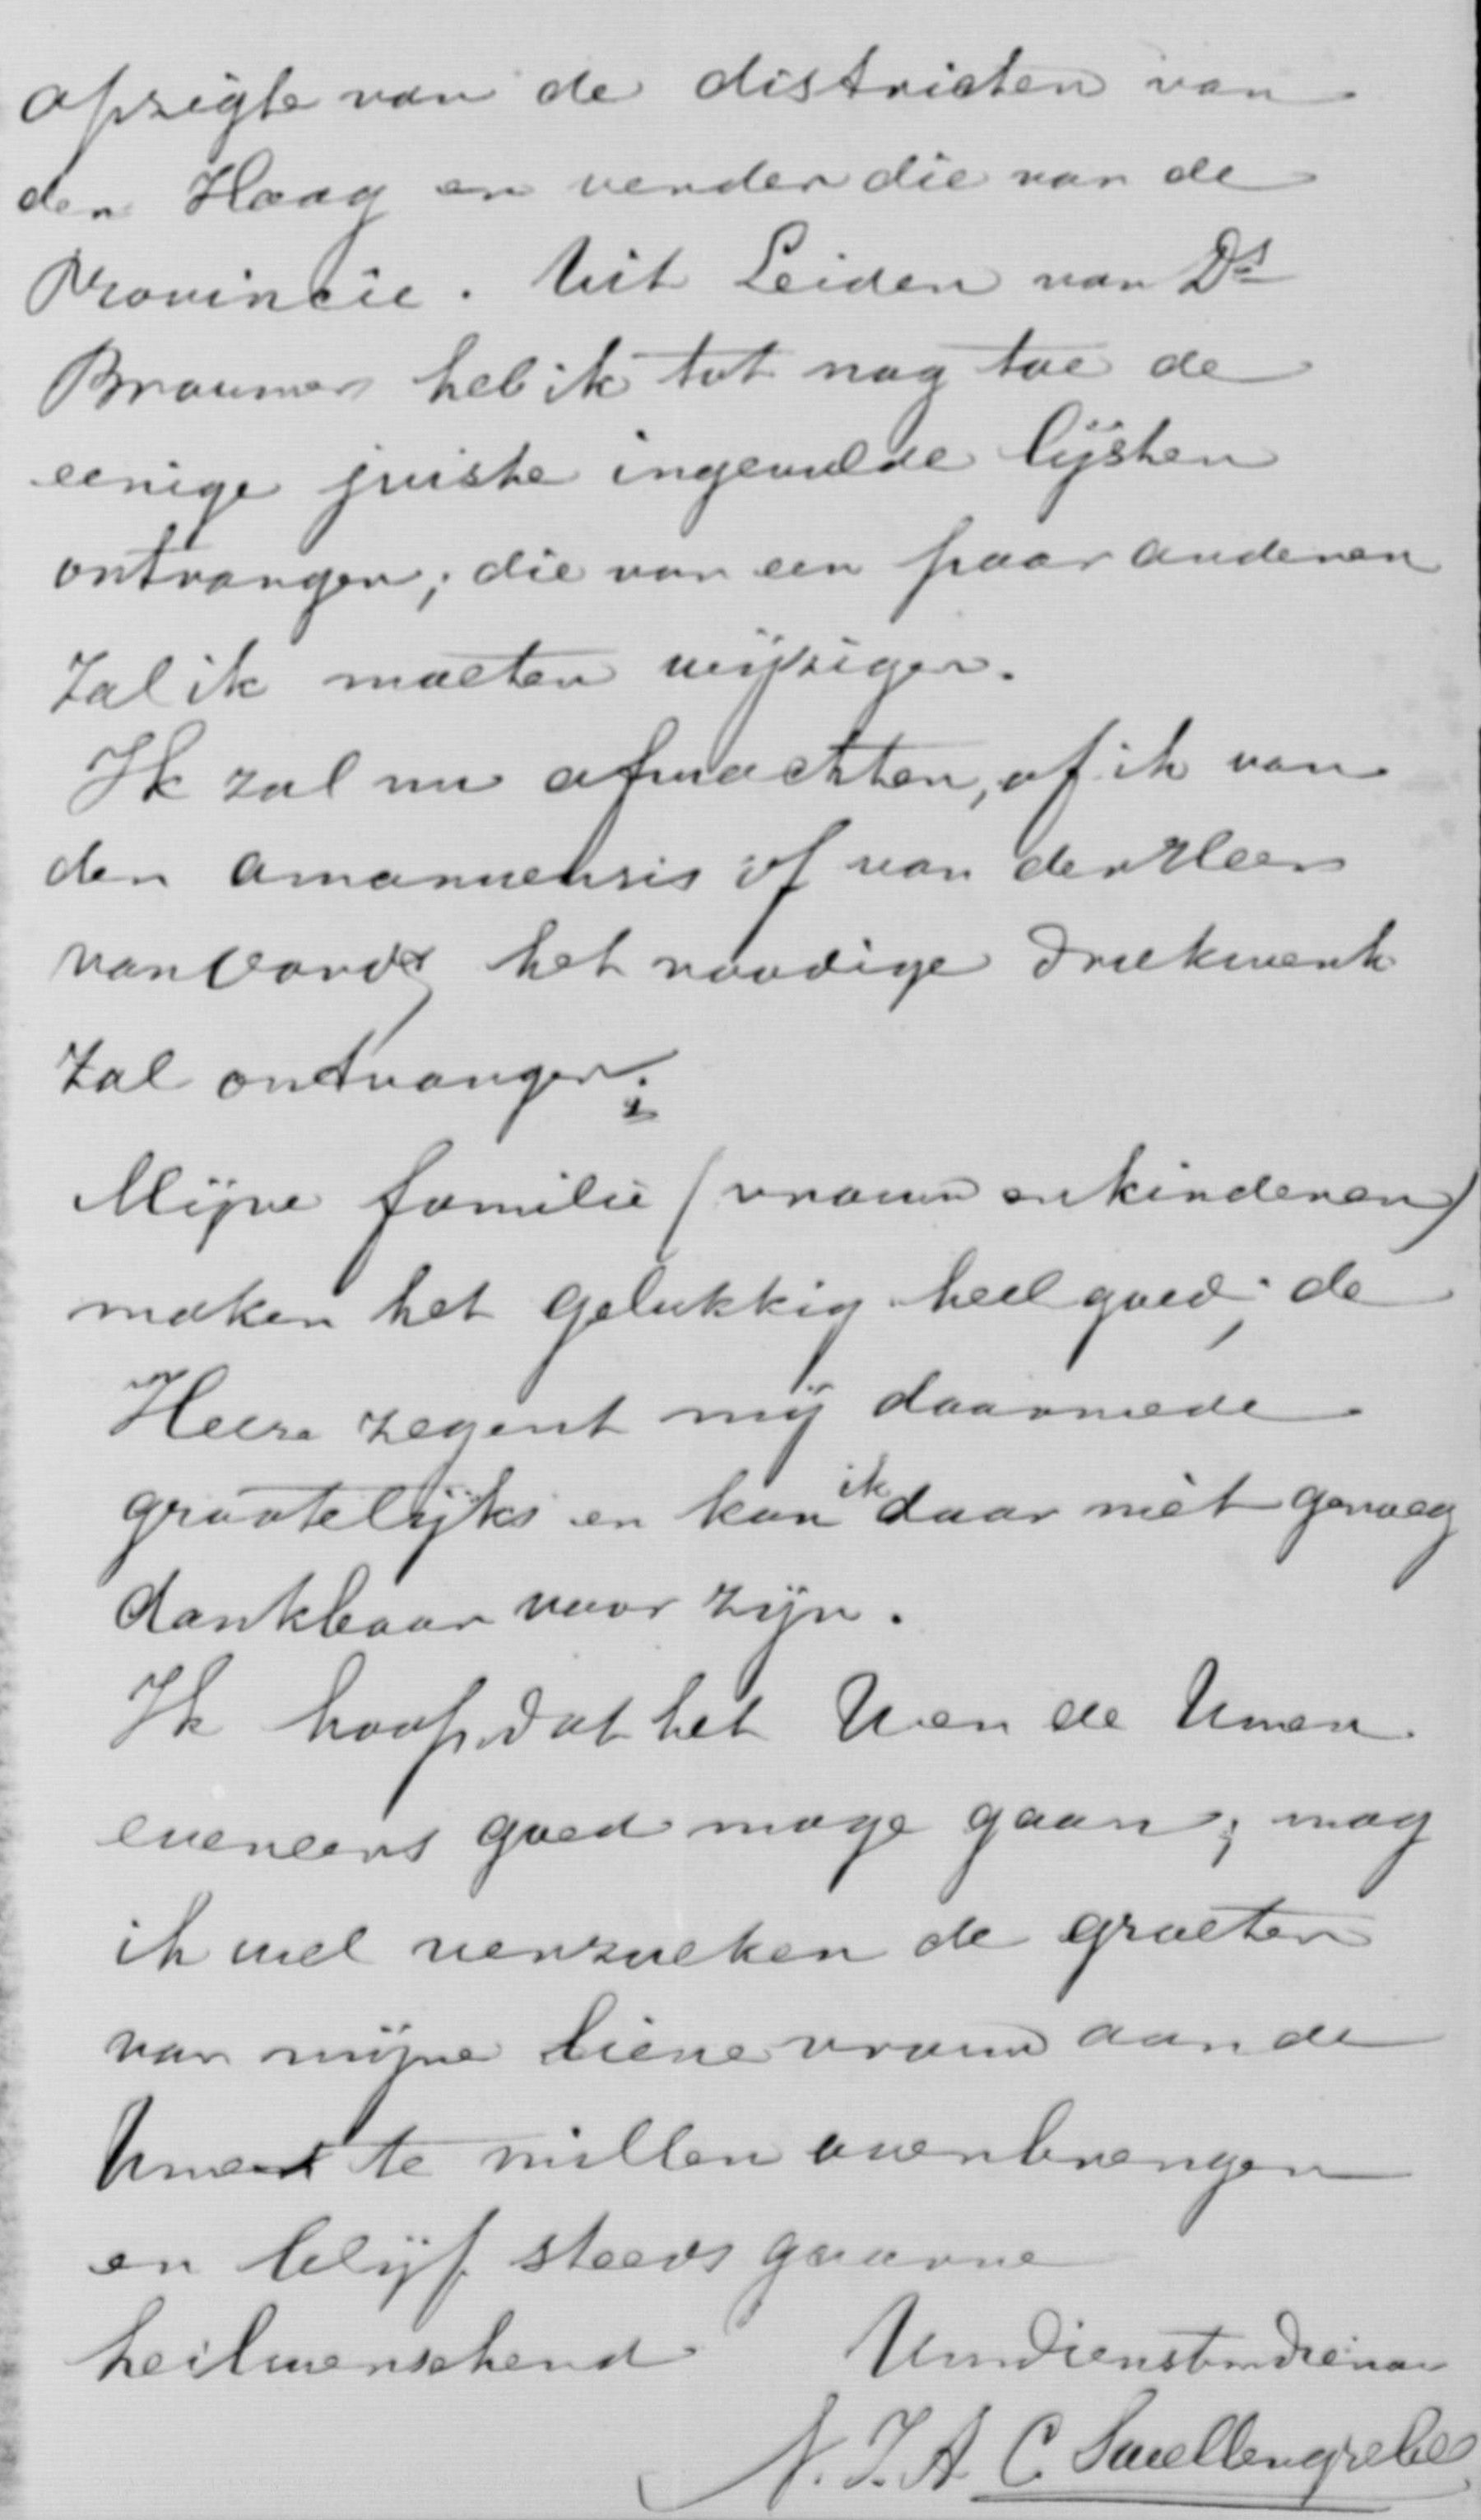 opzigte van de districten van
den Haag en verder die van de
Provincie. Uit Leiden van Ds
Brouwer heb ik tot nog toe de
eenige juiste ingevulde lijsten
ontvangen; die van een paar anderen
zal ik moeten wijzigen.
Ik zal nu afwachten, of ik van
den amanuensis of van den Heer
van het noodige drukwerk
zal ontvangen.
Mijne familie (vrouw en kinderen)
maken het gelukkig heel goed; de
Heere zegent mij daarmede
grootelijks en kan ik daar niet genoeg
dankbaar voor zijn.
Ik hoop dat het U en de Uwen
eveneens goed moge gaan; mag
ik wel verzoeken de groeten
van mijne lieve vrouw aan de
Uwen te willen overbrengen
en blijf steeds gaarne
heilwenschend Uw dienstw dienaar
N. J. A. C. Swellengrebel